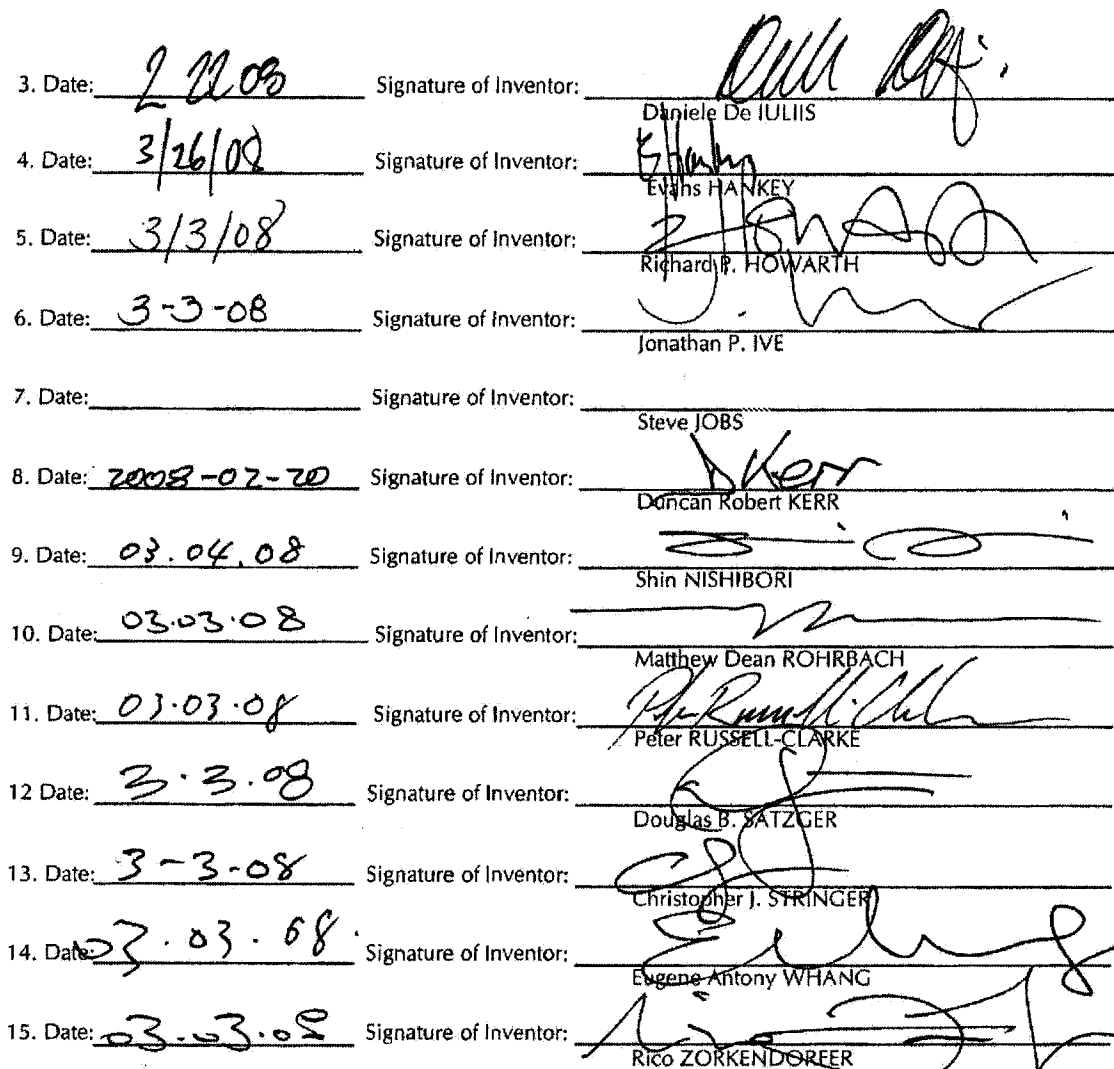 3. Date: 2 22 08 Signature of Inventor:
Daniele De IULIIS
4. Date: 3/26/08 Signature of Inventor: E Hankey
Evans HANKEY
5. Date: 3/3/08 Signature of Inventor:
Richard P. HOWARTH
6. Date: 3-3-08 Signature of Inventor:
Jonathan P. IVE
7. Date: Signature of Inventor:
Steve JOBS
8. Date: 2008-02-20 Signature of Inventor: D Kerr
Duncan Robert KERR
9. Date: 03.04.08 Signature of Inventor:
Shin NISHIBORI
10. Date: 03.03.08 Signature of Inventor:
Matthew Dean ROHRBACH
11. Date: 03.03.08 Signature of Inventor:
Peter RUSSELL-CLARKE
12 Date: 3.3.08 Signature of Inventor:
Douglas B. SATZGER
13. Date: 3-3-08 Signature of Inventor:
Christopher J. STRINGER
14. Date: 03.03.08. Signature of Inventor:
Eugene Antony WHANG
15. Date: 03.03.08 Signature of Inventor:
Rico ZORKENDORFER